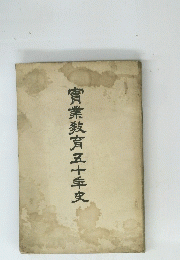 實業敎育五十年史